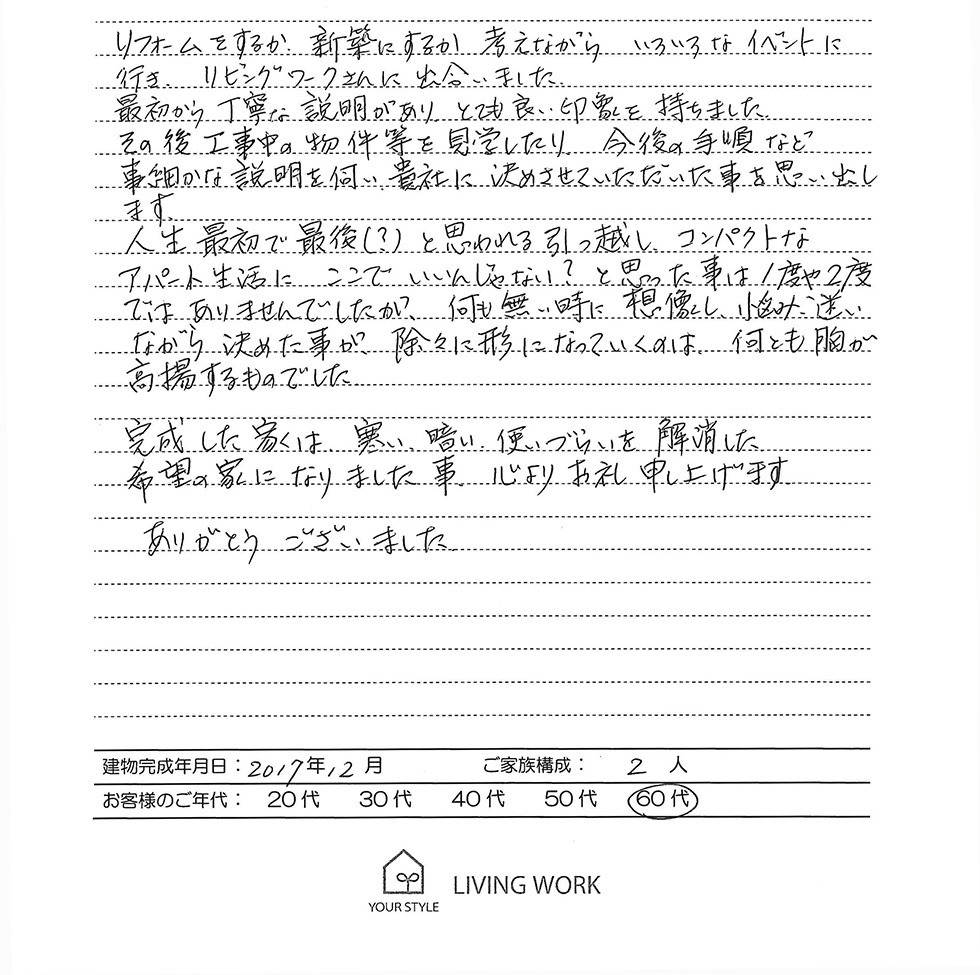 リフォームをするか 新築にするか 考えながら いろいろな イベントに
行き、リビングワークさんに 出合いました。
最初から 丁寧な 説明があり とても良い印象を 持ちました。
その後 工事中の 物件等を 見学したり、今後の 手順など
事細かな 説明を伺い、貴社に 決めさせていただいた事を 思い出し
ます。
人生 最初で 最後(?) と思われる 引っ越し、コンパクトな
アパート生活に ここで いいんじゃない? と思った事は 1度や2度
ではありませんでしたが、何も無い時に 想像し、悩み、迷い
ながら 決めた事が、除々に形になっていくのは、何とも胸が
高揚するものでした。
完成した 家くは、寒い、暗い、使いづらいを 解消した
希望の家に なりました事、心より お礼 申し上げます。
ありがとう ございました。
建物完成年月日:2017年12月 ご家族構成: 2 人
お客様のご年代: 20代 30代 40代 50代 60代
YOUR STYLE LIVING WORK